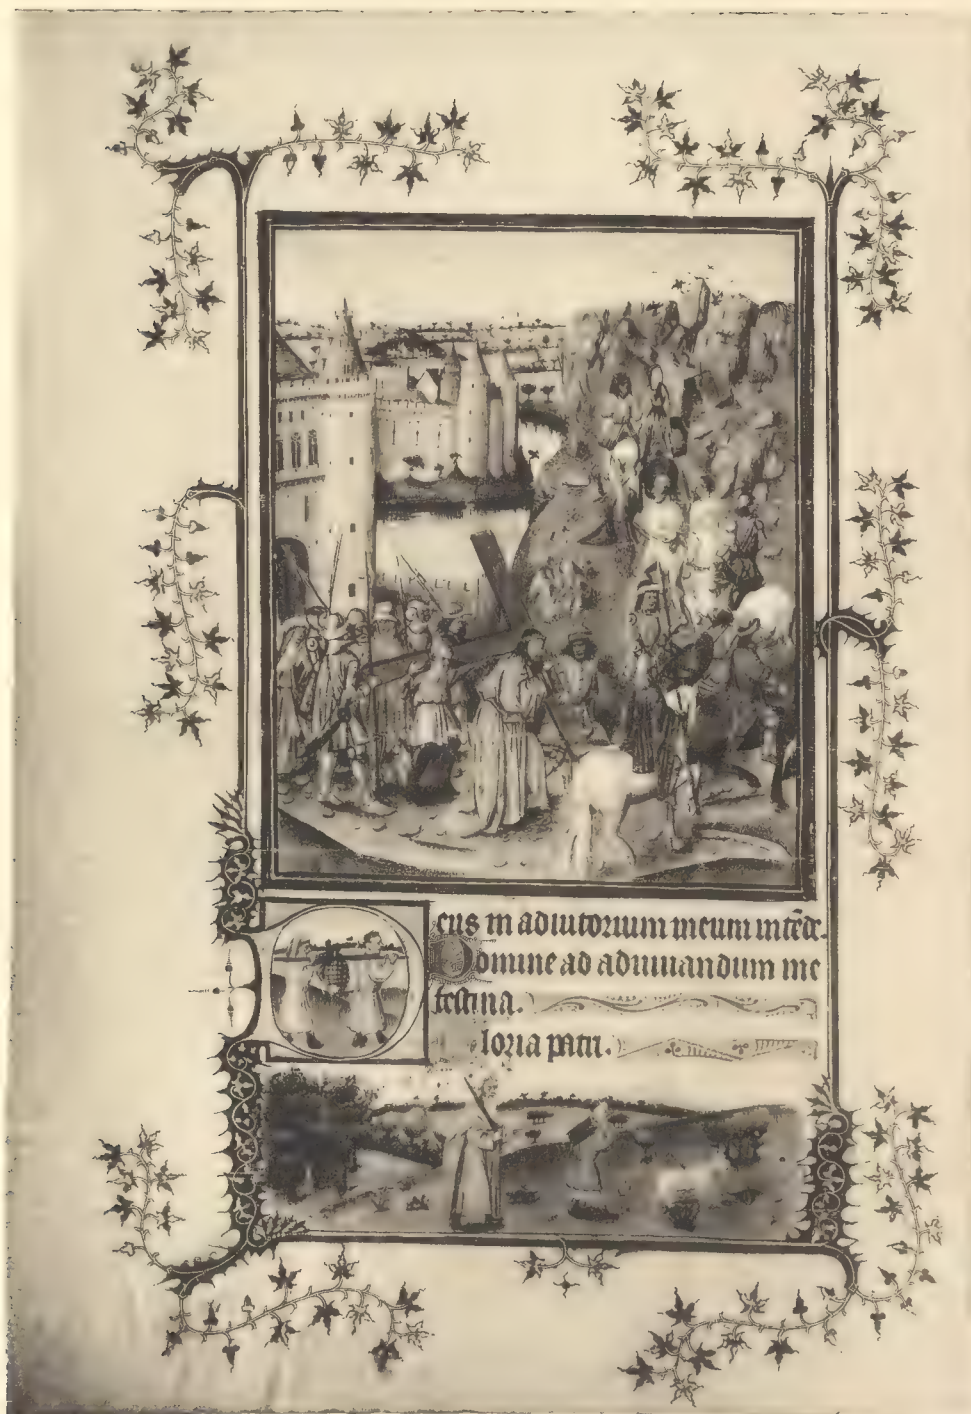 Deus in adiutorium meum intēde.
Domine ad adiuuandum me
festina.
Gloria patri.